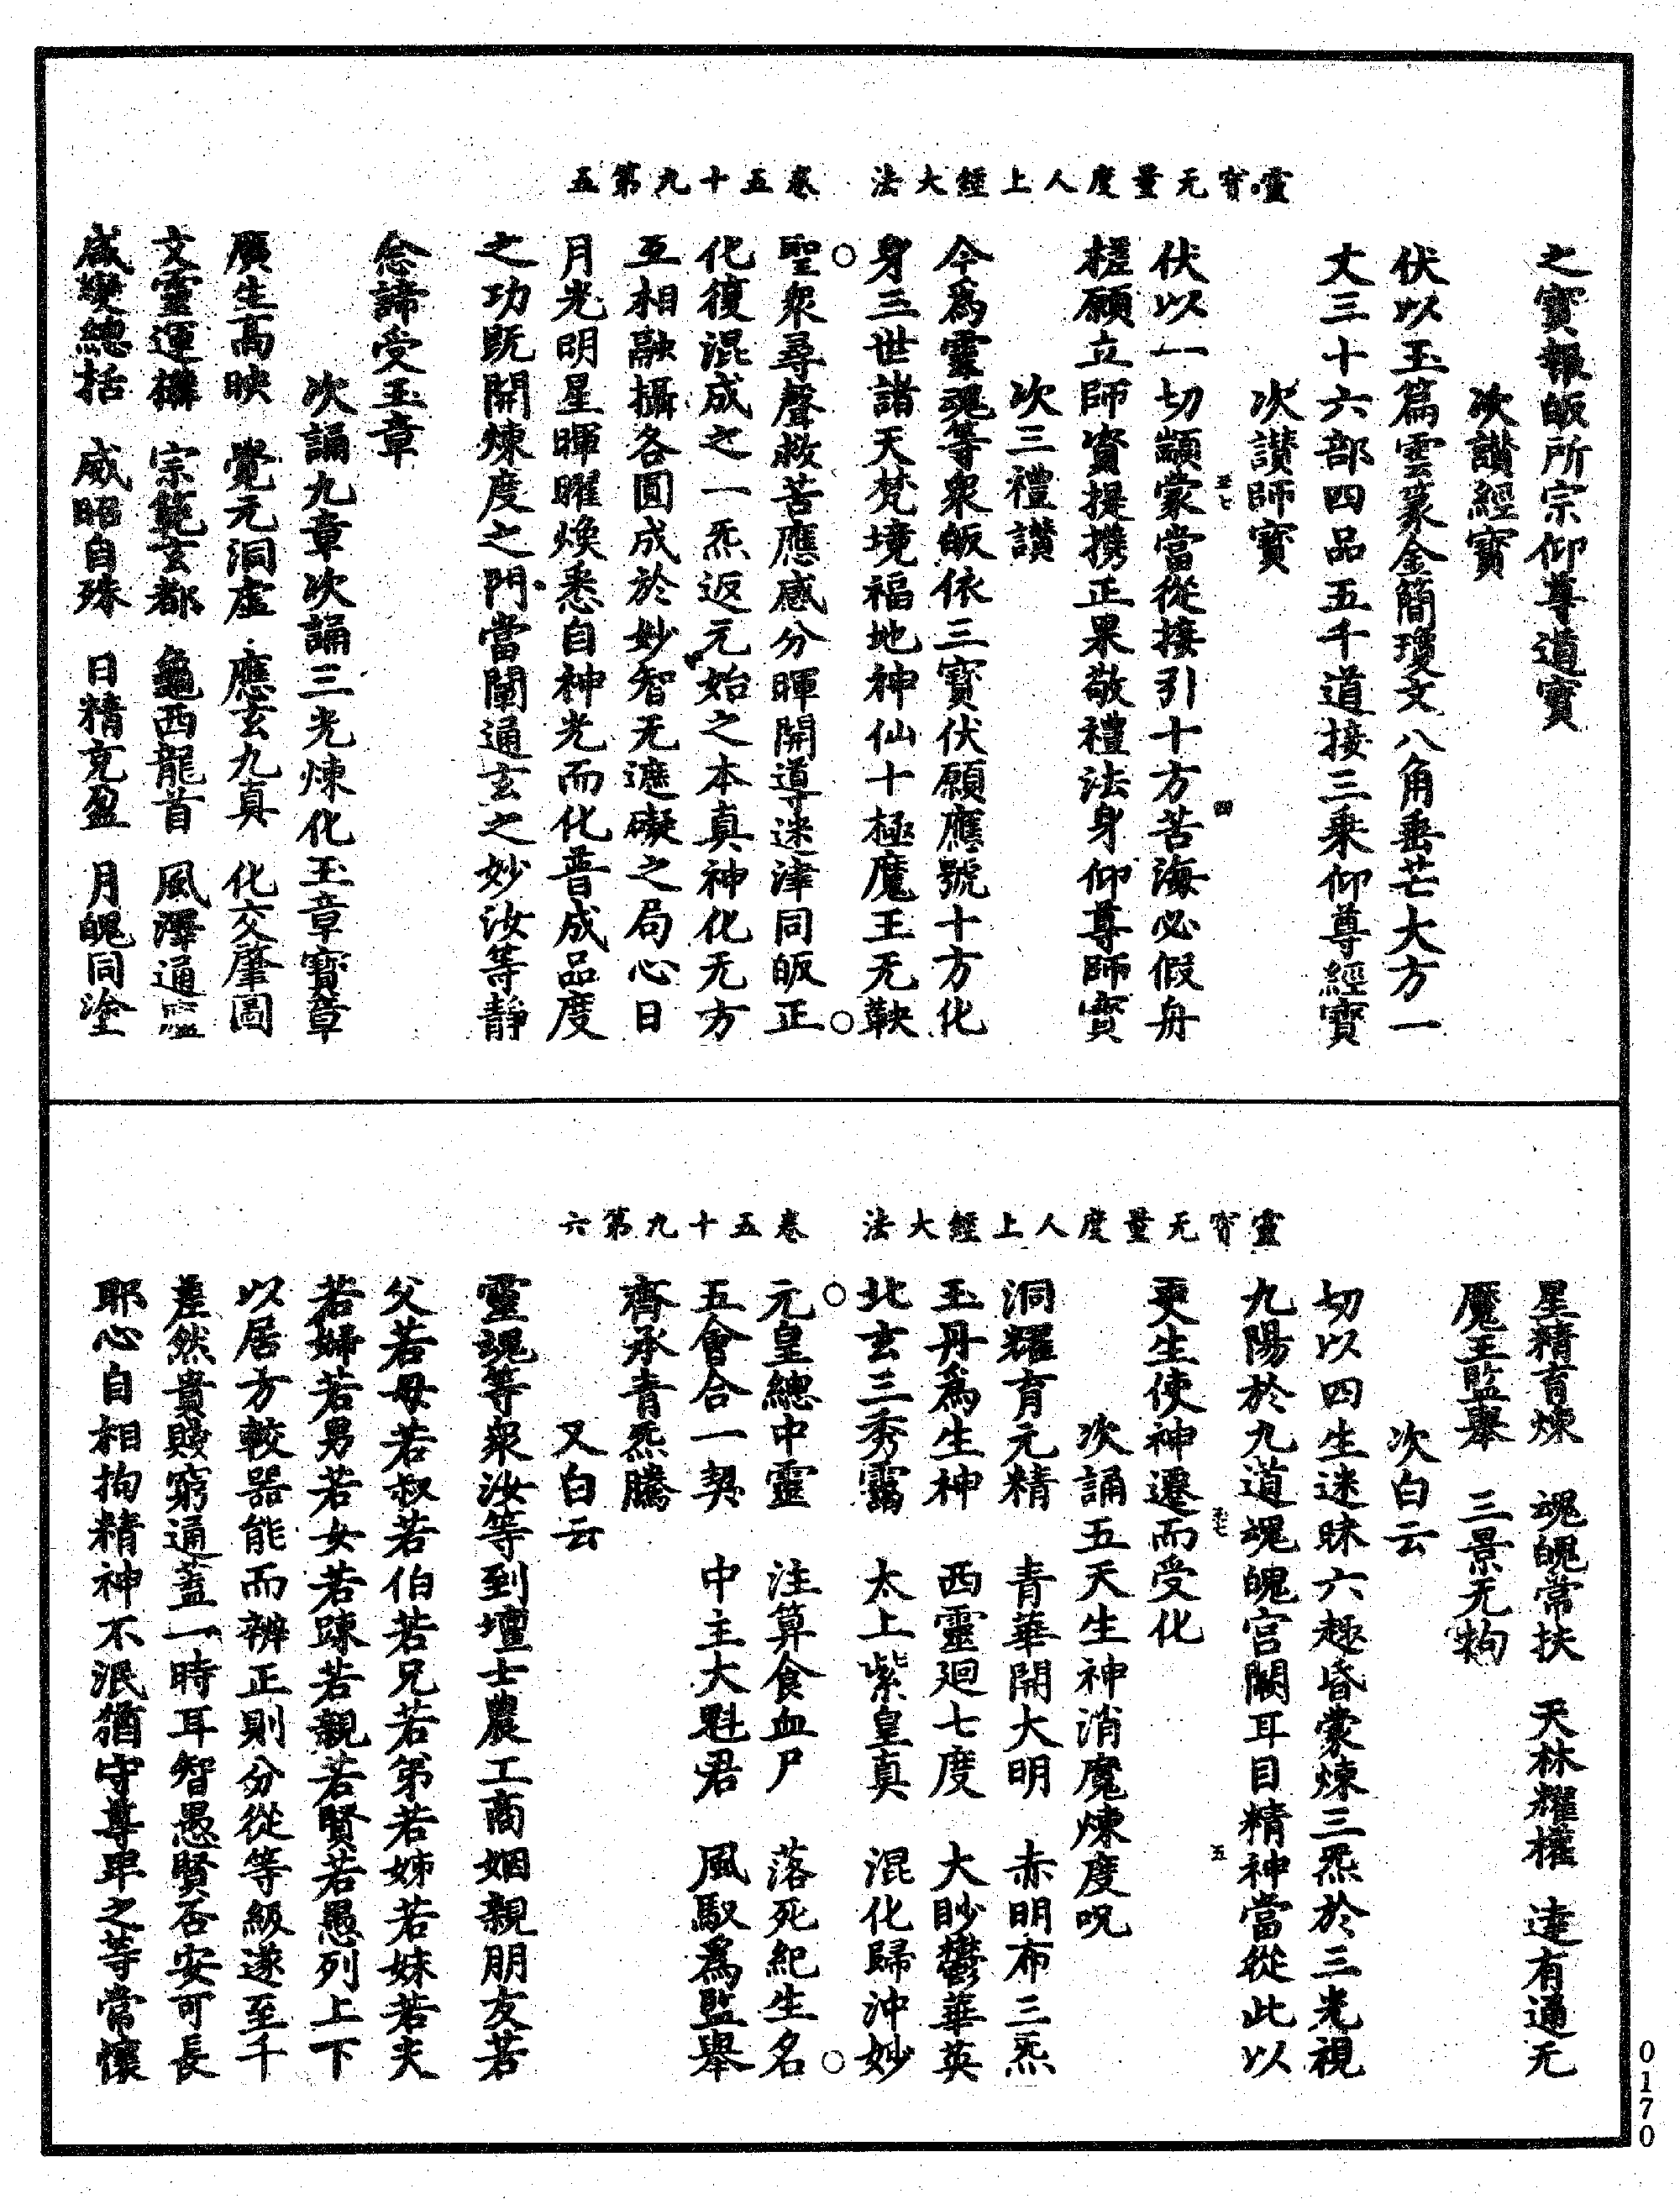 靈寶无量度人上經大法　卷五十九第五
之寶報皈所宗仰尊道寶
次讃經寶
伏以玉篇雲篆金簡瓊文八角垂芒大方一
丈三十六部四品五千道接三乘仰尊經寶
次讃師寶
五七　四
伏以一切顓蒙當從接引十方苦海必假舟
槎願立師資提攜正果敬禮法身仰尊師寶
次三禮讃
今爲靈魂等衆皈依三寶伏願應號十方化
身三世諸天梵境福地神仙十極魔王无鞅
聖衆尋聲救苦應感分暉開導迷津同皈正
化復混成之一炁返元始之本真神化无方
互相融攝各圓成於妙智无遮礙之局心日
月光明星暉曜煥悉自神光而化普成品度
之功既開煉度之門當闡通玄之妙汝等靜
念諦受玉章
次誦九章次誦三光煉化玉章寶章
廣生高映　覺元洞虛　應玄九真　化交肇圖
文靈運　宗範玄都　龜西龍首　風澤通
咸變總括　威昭自殊　日精充盈　月魄同塗
靈寶无量度人上經大法　卷五十九第六
星精育煉　魂魄常扶　天林耀權　達有通无
魔王監舉　三景无拘
次白云
切以四生迷昧六趣昏蒙煉三炁於三光視
九陽於九道魂魄宮闕耳目精神當從此以
五七　五
更生使神遷而受化
次誦五天生神消魔煉度呪
洞耀育元精　青華開大明　赤明布三炁
玉丹爲生神　西靈廻七度　大眇鬱華英
北玄三秀靄　太上紫皇真　混化歸沖妙
元皇總中靈　注算食血尸　落死紀生名
五會合一契　中主大魁君　風馭爲監舉
齊承青炁騰
又白云
靈魂等衆汝等到壇士農工商姻親朋友若
父若母若叔若伯若兄若弟若姊若妹若夫
若婦若男若女若踈若親若賢若愚列上下
以居方較器能而辨正則分從等級遂至千
差然貴賤窮通蓋一時耳智愚賢否安可長
耶心自相拘精神不泯猶守尊卑之等常懷
0170